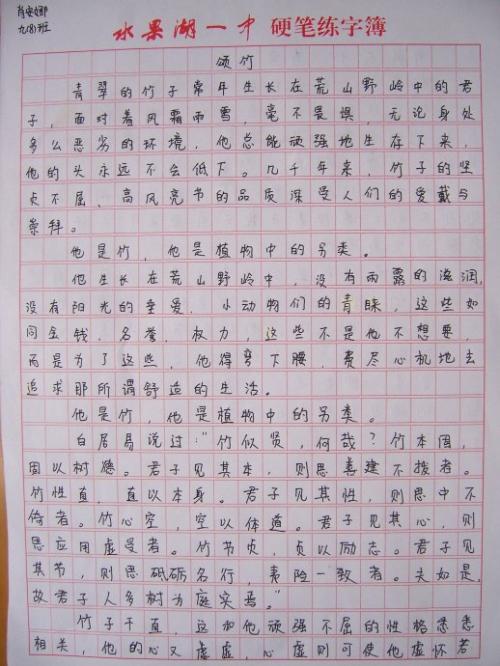 肖安娜
九(8)班
水果湖一中 硬笔练字簿
颂竹
青翠的竹子常年生长在荒山野岭中的君
子，面对着风霜雨雪，毫不畏惧，无论身处
多么恶劣的环境，他总能顽强地生存下来，
他的头永远不会低下。几千年来，竹子的坚
贞不屈、高风亮节的品质深受人们的爱戴与
崇拜。
他是竹，他是植物中的另类。
他生长在荒山野岭中，没有雨露的滋润，
没有阳光的垂爱，小动物们的青睐，这些如
同金钱，名誉，权力，这些不是他不想要，
而是为了这些，他得弯下腰，费尽心机地去
追求那所谓舒适的生活。
他是竹，他是植物中的另类。
白居易说过：“竹似贤，何哉？竹本固，
固以树德。君子见其本，则思善建不拨者。
竹性直，直以本身。君子见其性，则思中不
倚者。竹心空，空以体道。君子见其心，则
思应用虚受者。竹节贞，贞以励志。君子见
其节，则思砥砺名行，夷险一致者。夫如是，
故君子人多树为庭实焉。”
竹子干直，这和他顽强不屈的性格悉悉
相关，他的心又虚虚，心虚则可使他虚怀若